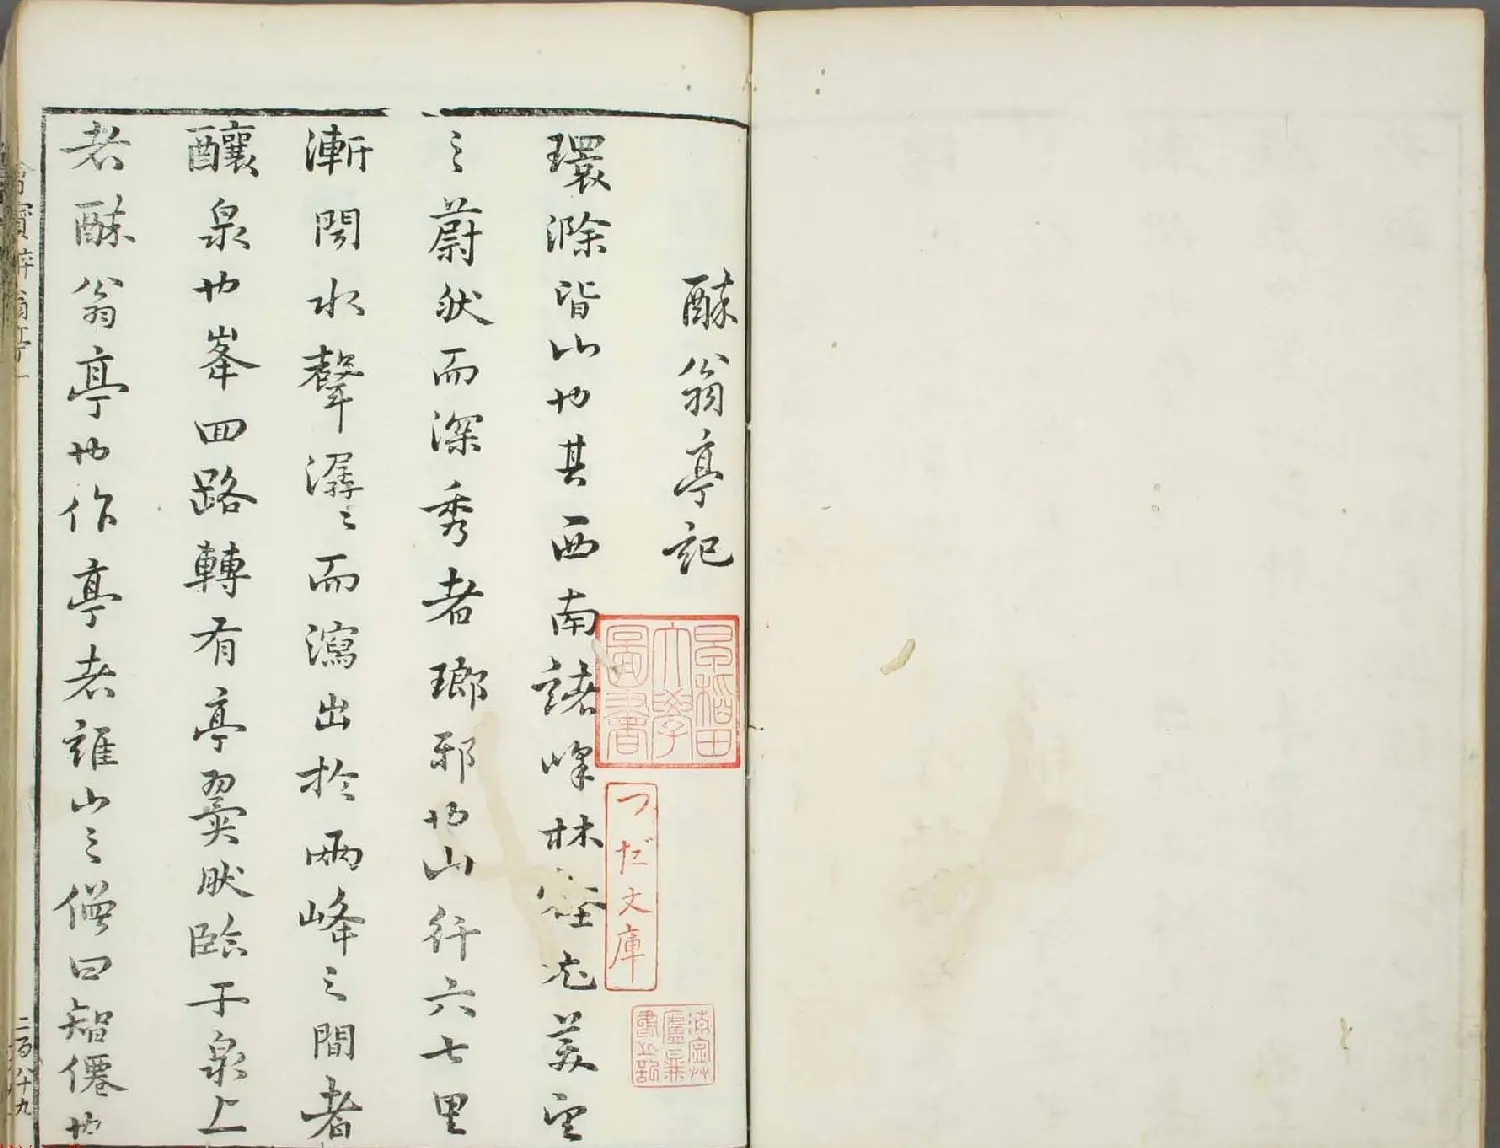 醉翁亭記
環滁皆山也其西南諸峰林壑尤美望
之蔚然而深秀者瑯邪也山行六七里
漸聞水聲潺〻而瀉出於兩峰之間者
釀泉也峯回路轉有亭翼然臨于泉上
者醉翁亭也作亭者誰山之僧曰智僊也
早稻田
大學
圖書
つだ文庫
寶醉翁亭
二百八十九